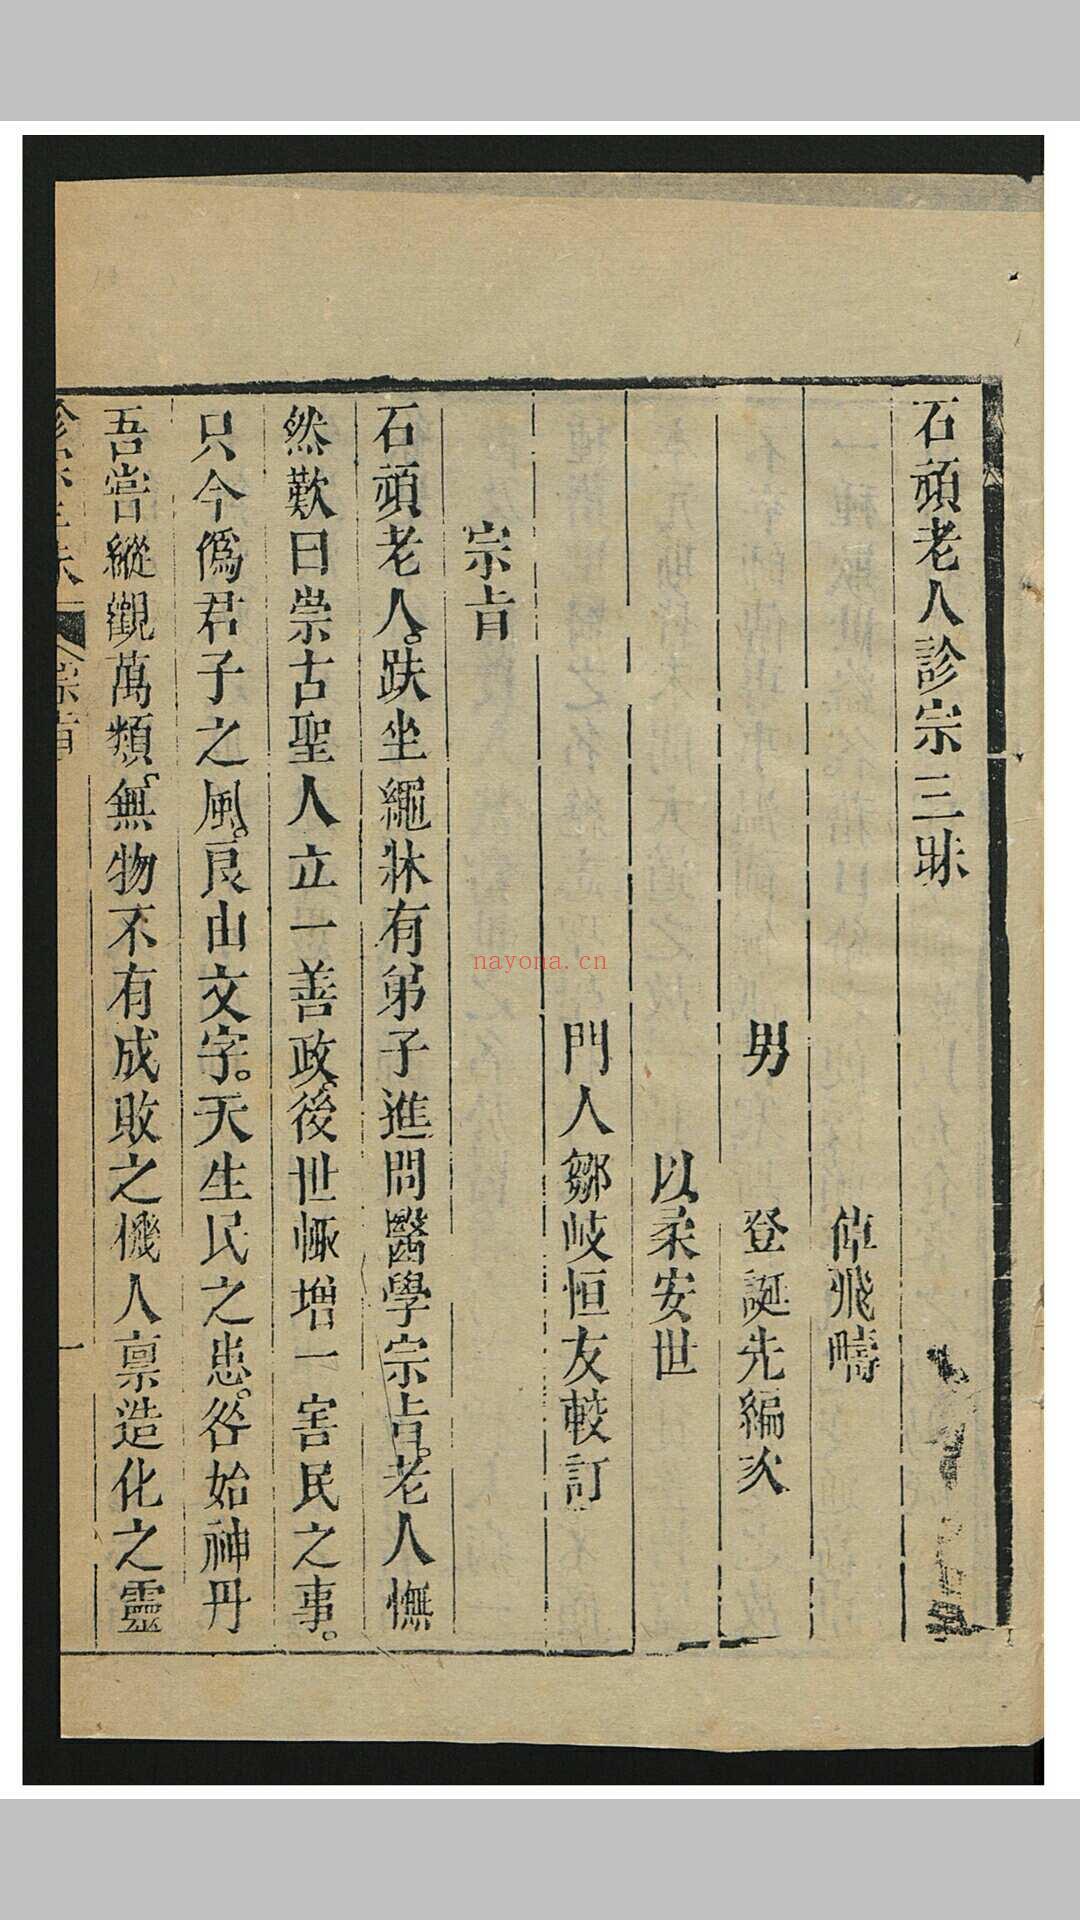 石頑老人診宗三昧
倬飛疇
男 登誕先編次
以柔安世
門人鄒岐恒友較訂
宗旨
石頑老人。趺坐繩牀有弟子進問醫學宗旨。老人憮
然歎曰崇古聖人立一善政、後世輙增一害民之事。
只今僞君子之風。良由文字。天生民之患。咎始神丹
吾嘗縱觀萬類、無物不有成敗之機人禀造化之靈
宗旨
一
nayona.cn